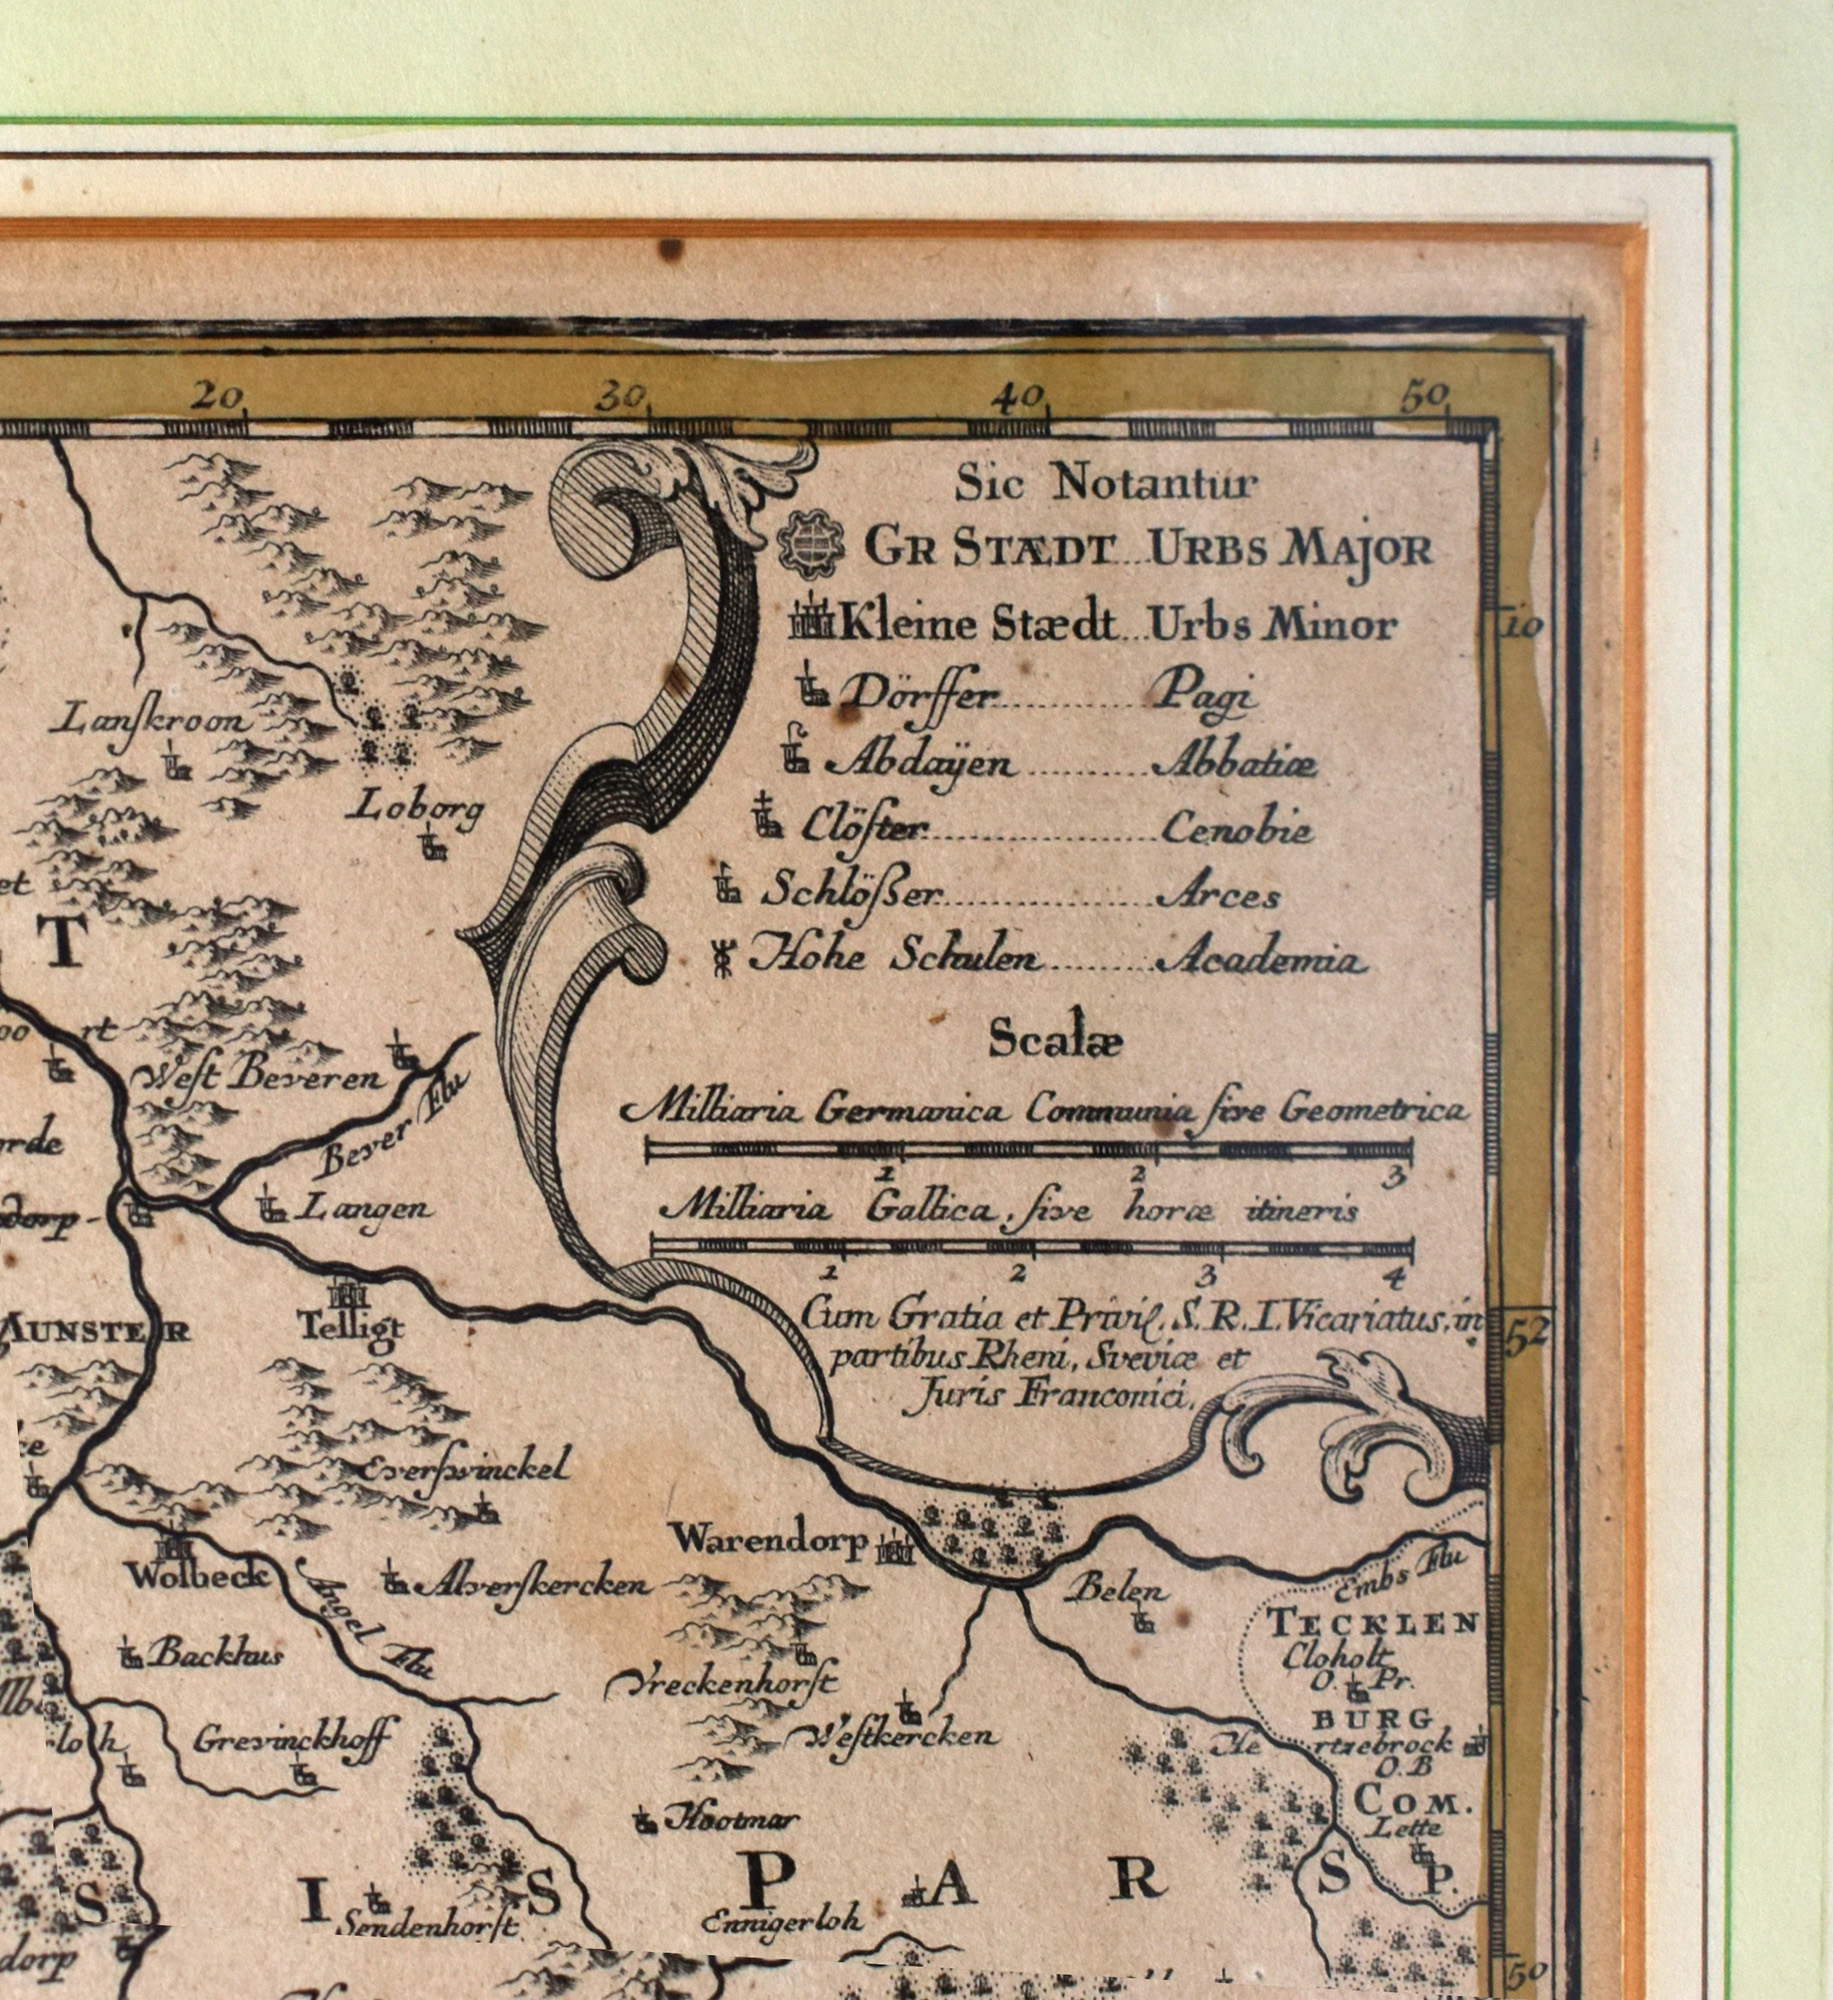 20 30 40 50
Sic Notantur
GR STÆDT...URBS MAJOR
Kleine Stædt...Urbs Minor
10
Dörffer............Pagi
Abdaÿen.........Abbatiæ
Clöſter.................Cenobie
Schlößer................Arces
Hohe Schulen.........Academia
Scalæ
Milliaria Germanica Communia ſive Geometrica
1 2 3
Milliaria Gallica, ſive horæ itineris
1 2 3 4
Cum Gratia et Privil. S. R. I. Vicariatus, in
partibus Rheni, Sveviæ et
Juris Franconici.
52
Lanſkroon
Loborg
et
T
rt
Weſt Beveren
Bever Flu
orde
dorp
Langen
MUNSTER
Telligt
Everſwinckel
Warendorp
Wolbeck
Alverſkercken
Angel Flu
Belen
Embs Flu
TECKLEN
Cloholt
O. Pr.
BURG
Backhus
Vreckenhorſt
Weſtkercken
Grevinckhoff
loh
Hertzebrock
O.B
COM.
Lette
Hootmar
S I S P A R S P.
Sendenhorſt
Ennigerloh
dorp
50